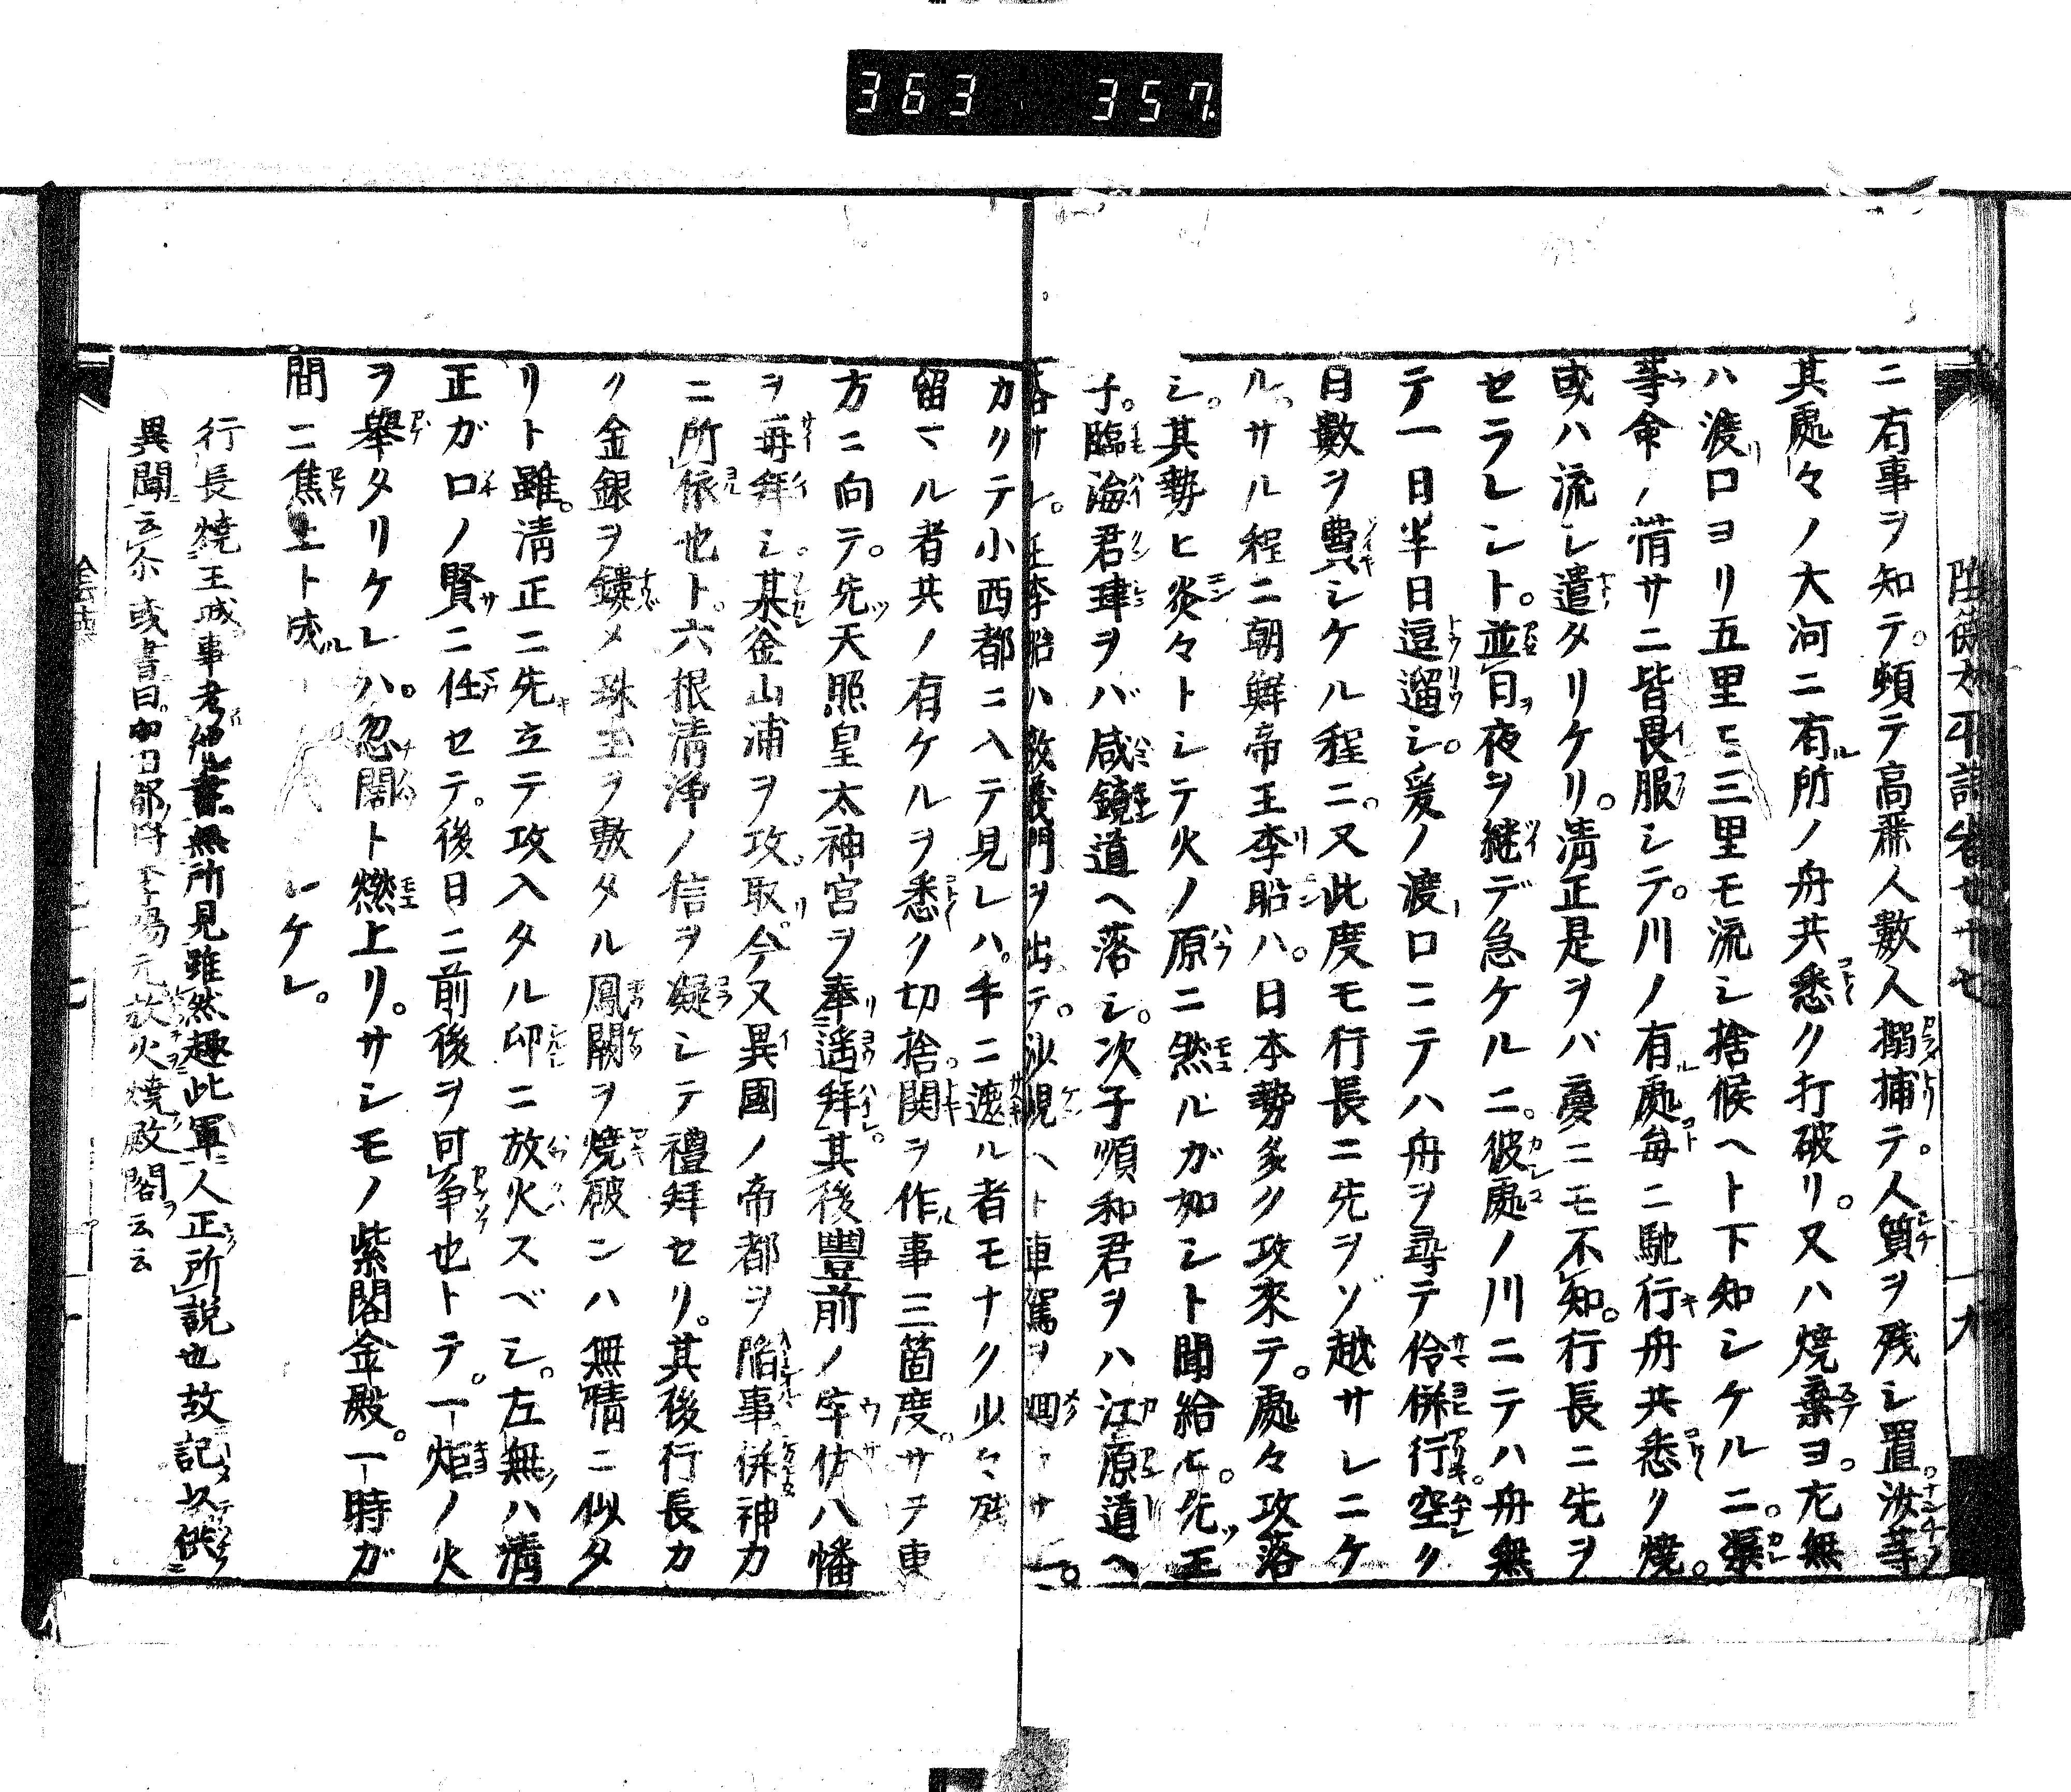 363 357
ニ有事ヲ知テ。頓テ高麗人數人搦捕テ。人質ヲ残シ置。汝等
其處々ノ大河ニ有所ノ舟共悉ク打破リ。又ハ焼棄ヨ。尤無
ハ渡口ヨリ五里モ三里モ流シ捨候ヘト下知シケルニ。渠
等命ノ惜サニ皆畏服シテ。川ノ有處毎ニ馳行舟共悉ク焼。
或ハ流レ遣タリケリ。清正是ヲバ夢ニモ不知。行長ニ先ヲ
セラレント。並日夜ヲ継デ急ケルニ。彼處ノ川ニテハ舟無
テ一日半日逗遛シ。爰ノ渡口ニテハ舟ヲ尋テ伶俜行。空ク
日數ヲ費シケル程ニ。又此度モ行長ニ先ヲゾ越サレニケ
ル。サル程ニ朝鮮帝王李昖ハ。日本勢多ク攻來テ。處々攻落
シ。其勢ヒ炎々トシテ火ノ原ニ燃ルガ如シト聞給ヒ。先王
子。臨海君珒ヲバ咸鏡道ヘ落シ。次子順和君ヲハ江原道ヘ
落サレ。王李昖ハ敦義門ヲ出テ。沙峴ヘト車駕ヲ廻
カクテ小西都ニ入テ見レハ。手ニ遮ル者モナク少々残
留マル者共ノ有ケルヲ悉ク切捨。関ヲ作事三箇度。サテ東
方ニ向テ。先天照皇太神宮ヲ奉遙拜。其後豐前ノ宇佐八幡
ヲ再拜シ。某釜山浦ヲ攻取。今又異國ノ帝都ヲ陥事。併神力
ニ所依也ト。六根清浄ノ信ヲ凝シテ禮拜セリ。其後行長カ
ク金銀ヲ鏤メ珠玉ヲ敷タル鳳闕ヲ焼破ンハ無情ニ似タ
リト雖。清正ニ先立テ攻入タル印ニ放火スベシ。左無ハ清
正ガ口ノ賢ニ任セテ。後日ニ前後ヲ可争也トテ。一炬ノ火
ヲ舉タリケレハ。忽閧ト燃上リ。サシモノ紫閣金殿。一時ガ
間ニ焦土ト成ニケレ。
行長焼王城事考他書無所見雖然趣此軍人正所説也故記以供
異聞云尓或書曰
放火焼殿閣云云